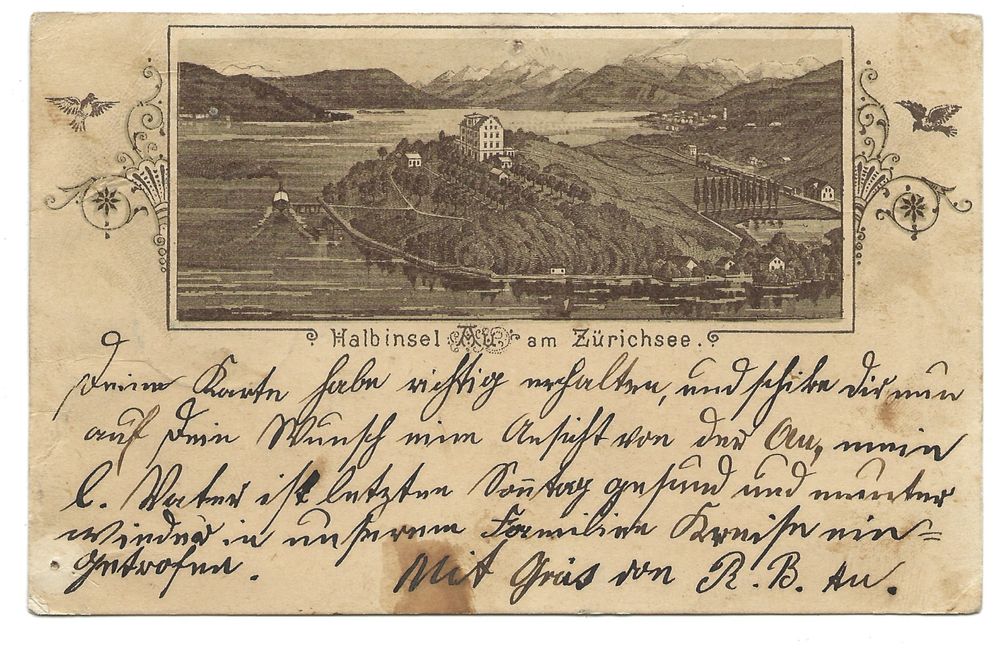 Halbinsel Au am Zürichsee.
Deine Karte habe richtig erhalten, und schike Dir nun
auf Dein Wunsch eine Ansicht von der Au, mein
l. Vater ist letzten Sonntag gesund und munter
wieder in unserem Familien Kreise ein=
getrofen. Mit Grüs von R. B. Au.